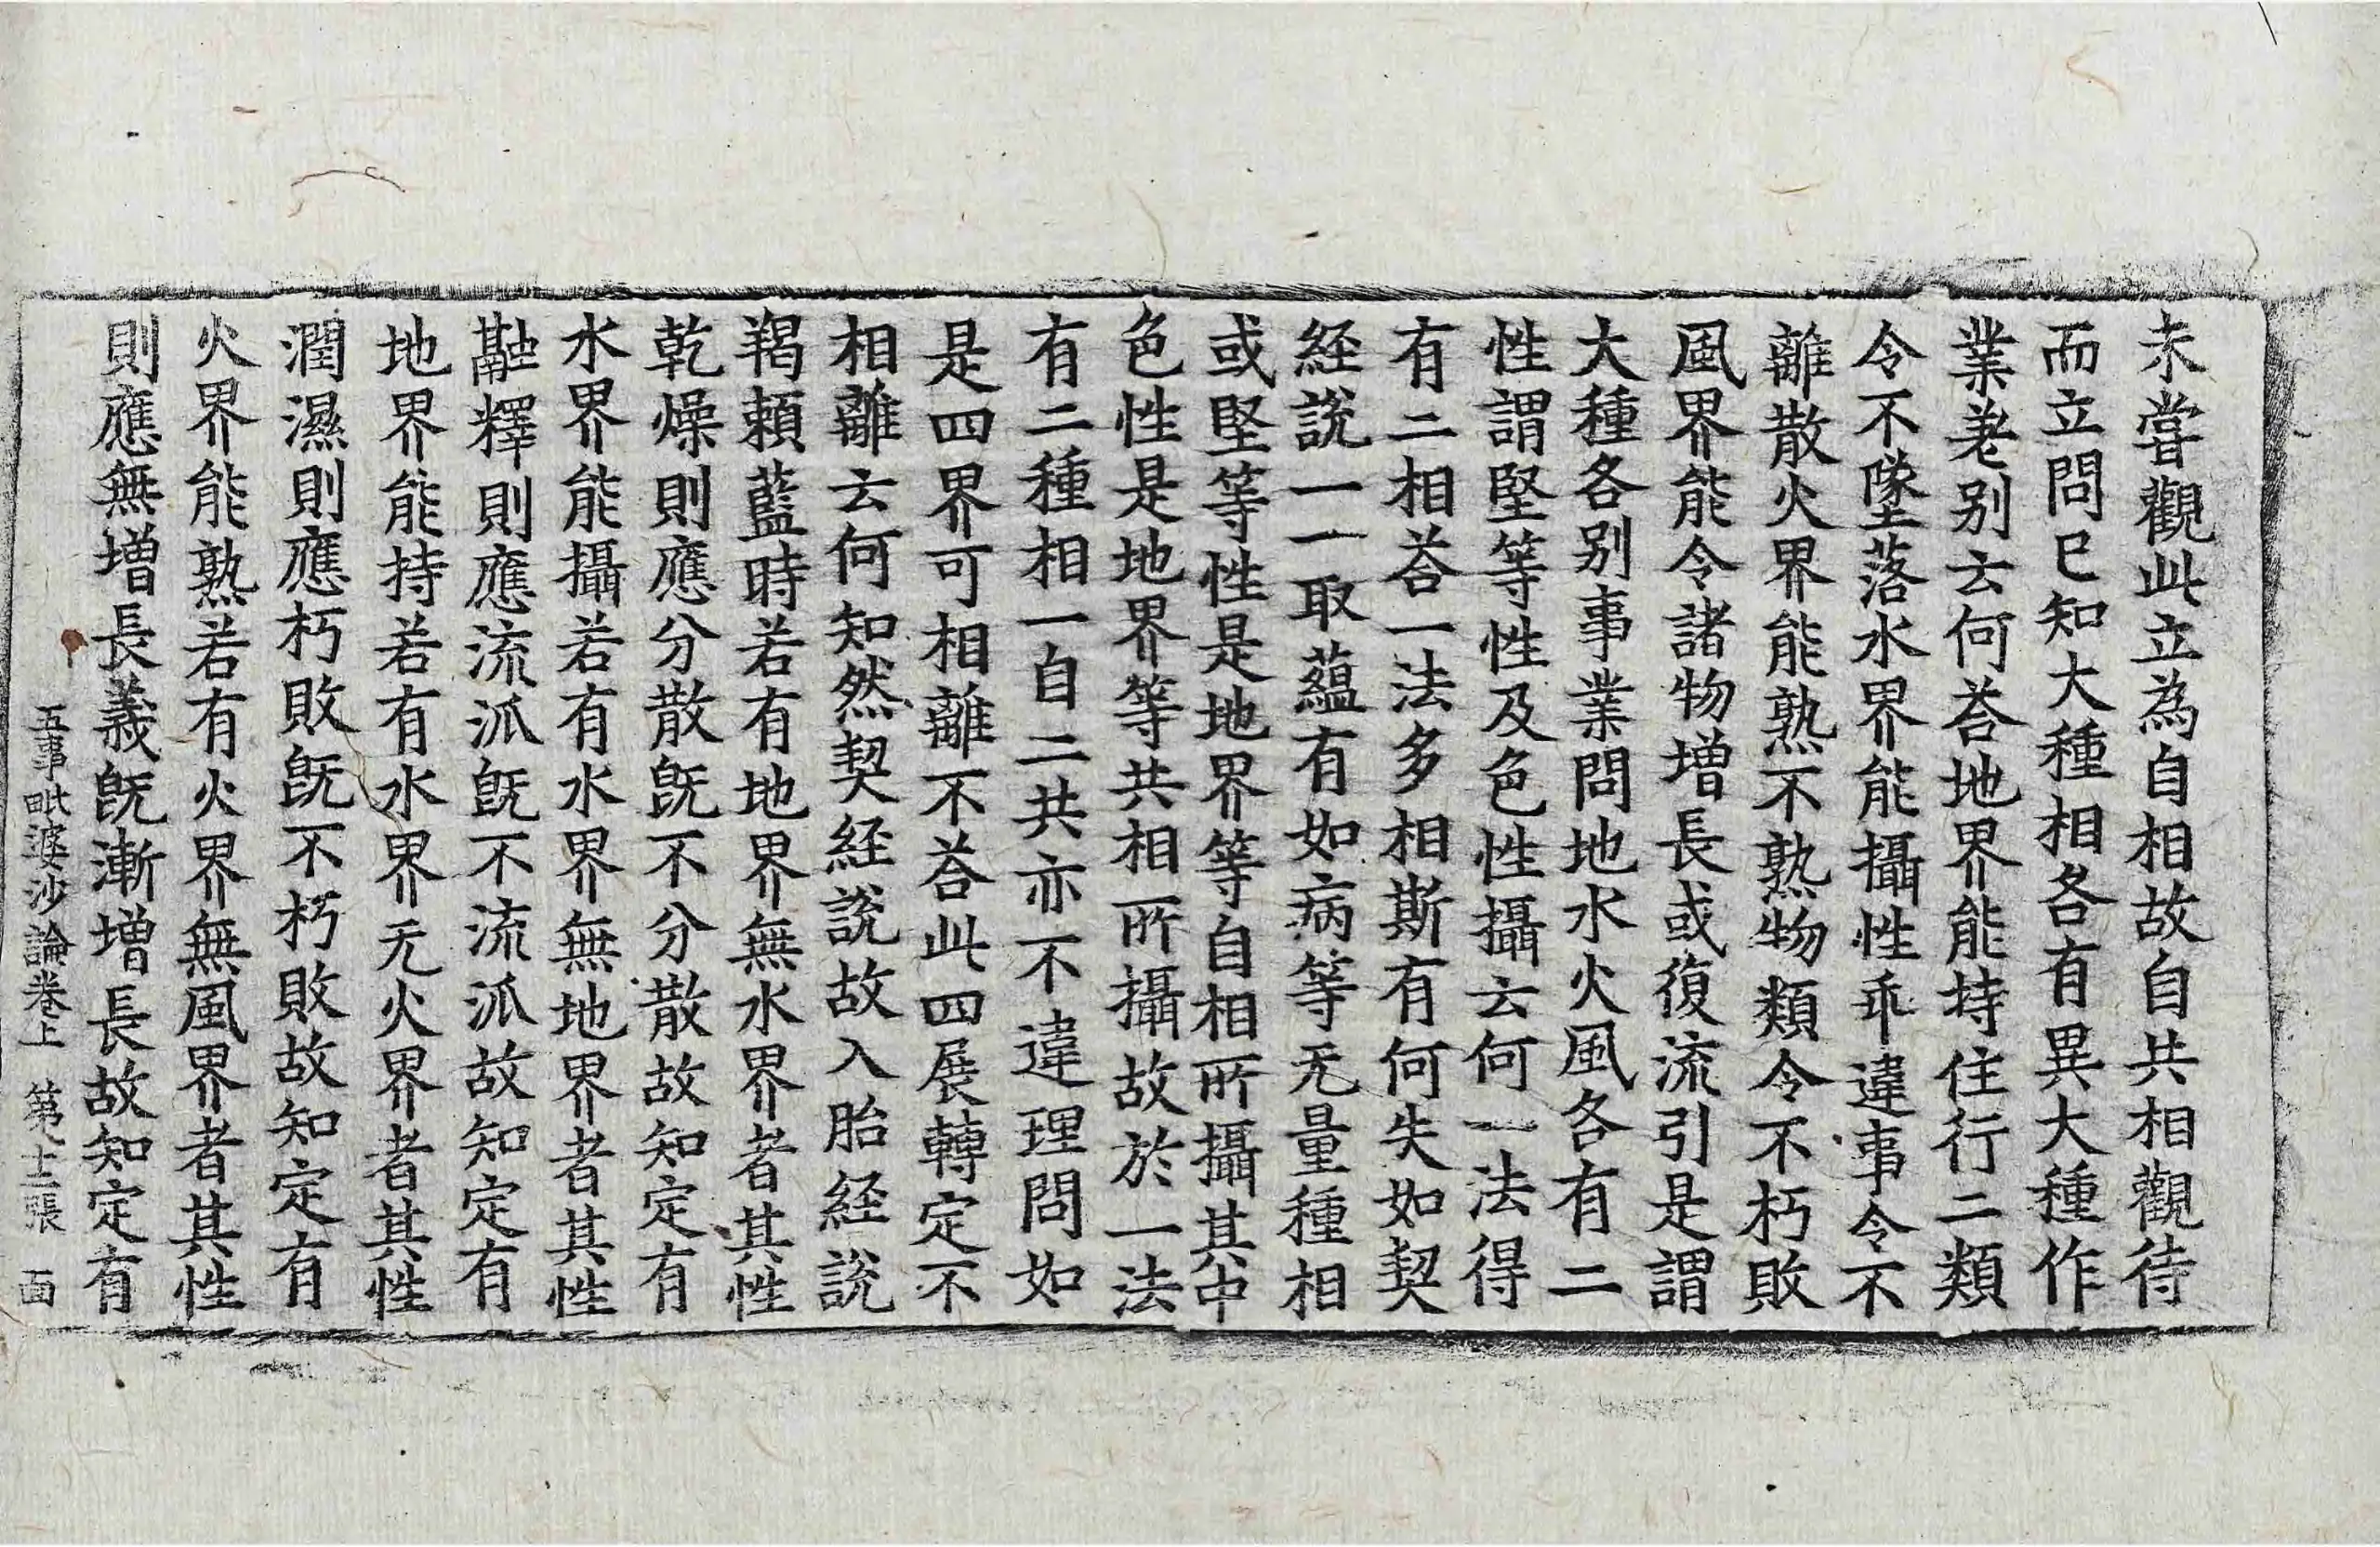 未嘗觀此立為自相故自共相觀待
而立問已知大種相各有異大種作
業老别云何荅地界能持住行二類
令不墜落水界能攝性乖違事令不
離散火界能熟不熟物類令不朽敗
風界能令諸物增長或復流引是謂
大種各别事業問地水火風各有二
性謂堅等性及色性攝云何一法得
有二相荅一法多相斯有何失如契
経說一一取蘊有如病等无量種相
或堅等性是地界等自相所攝其中
色性是地界等共相所攝故於一法
有二種相一自二共亦不違理問如
是四界可相離不荅此四展轉定不
相離云何知然契経說故入胎経說
羯頼藍時若有地界無水界者其性
乾燥則應分散旣不分散故知定有
水界能攝若有水界無地界者其性
融釋則應流派旣不流派故知定有
地界能持若有水界无火界者其性
潤濕則應朽敗旣不朽敗故知定有
火界能熟若有火界無風界者其性
則應無增長義旣漸增長故知定有
五事毗婆沙論卷上 第十二張 面